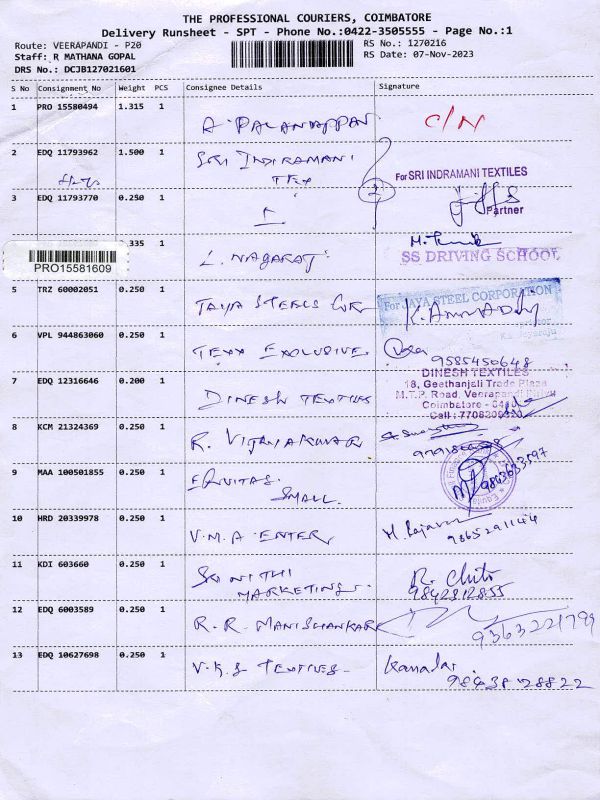 THE PROFESSIONAL COURIERS, COIMBATORE
Delivery Runsheet - SPT - Phone No.:0422-3505555 - Page No.:1
Route: VEERAPANDI - P20 RS No.: 1270216
Staff: R MATHANA GOPAL RS Date: 07-Nov-2023
DRS No.: DCJB127021601
S No Consignment No Weight PCS Consignee Details Signature
1 PRO 15580494 1.315 1 A. PALANIAPPAN C/N
2 EDQ 11793962 1.500 1 SRI INDIRAMANI TEX
2
For SRI INDRAMANI TEXTILES
Partner
3 EDQ 11793770 0.250 1
.335 1 L. NAGARAJ
PRO15581609
SS DRIVING SCHOOL
5 TRZ 60002051 0.250 1 JAYA STEELS
For JAYA STEEL CORPORATION
6 VPL 944863060 0.250 1 TEXX EXCLUSIVE
9585450648
7 EDQ 12316646 0.200 1 DINESH TEXTILES
DINESH TEXTILES
18, Geethanjali Trade Plaza
M.T.P. Road, Veerapandi Pirivu
Coimbatore -
Cell :
8 KCM 21324369 0.250 1 R. VIJAYAKUMAR
9 MAA 100501855 0.250 1 EQUITAS SMALL.
9843633597
10 HRD 20339978 0.250 1 V.M.A ENTER
11 KDI 603660 0.250 1 MARKETINGS
R. Chits
9842812855
12 EDQ 6003589 0.250 1 R. R. MANISHANKAR
9363221799
13 EDQ 10627698 0.250 1 V.K.S TEXTILES